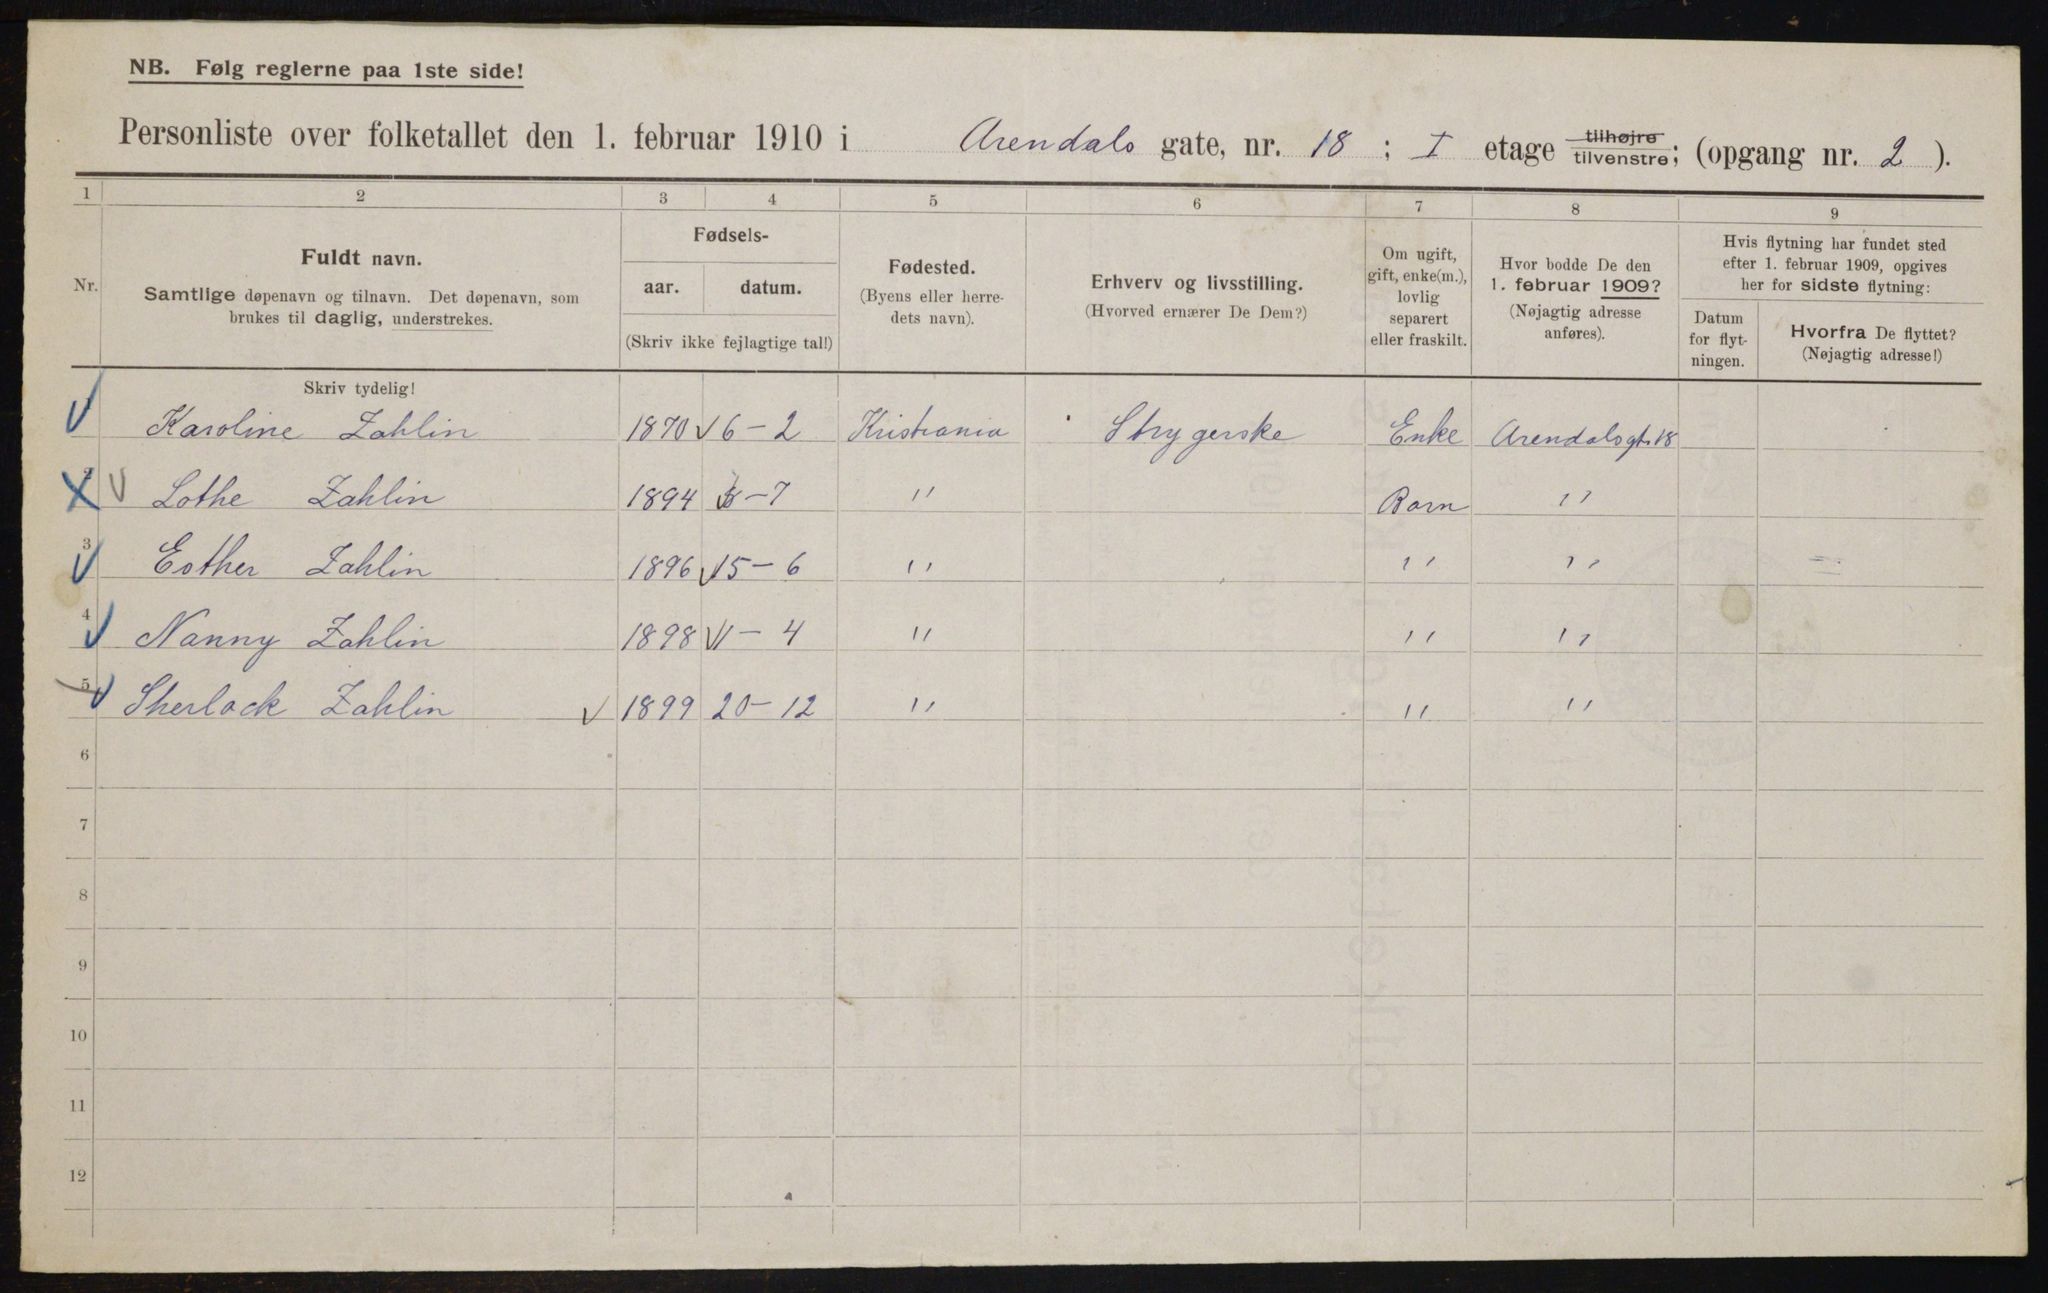 NB. Følg reglerne paa 1ste side!
Personliste over folketallet den 1. februar 1910 i Arendals gate, nr. 18 ; I etage tilhøjre tilvenstre; (opgang nr. 2 ).
1 2 3 4 5 6 7 8 9
Nr.
Fuldt navn.
Samtlige døpenavn og tilnavn. Det døpenavn, som
brukes til daglig, understrekes.
Fødsels-
aar. datum.
(Skriv ikke fejlagtige tal!)
Fødested.
(Byens eller herre-
dets navn).
Erhverv og livsstilling.
(Hvorved ernærer De Dem?)
Om ugift,
gift, enke(m.),
lovlig
separert
eller fraskilt.
Hvor bodde De den
1. februar 1909?
(Nøjagtig adresse
anføres).
Hvis flytning har fundet sted
efter 1. februar 1909, opgives
her for sidste flytning:
Datum
for flyt-
ningen.
Hvorfra De flyttet?
(Nøjagtig adresse!)
Skriv tydelig!
Karoline Zahlin 1870 6-2 Kristiania Strygerske Enke Arendalsgt. 18
Lothe Zahlin 1894 -7 " Barn "
3 Esther Zahlin 1896 15-6 " " "
4 Nanny Zahlin 1898 1-4 " " "
5 Sherlock Zahlin 1899 20-12 " " "
6
7
8
9
10
11
12